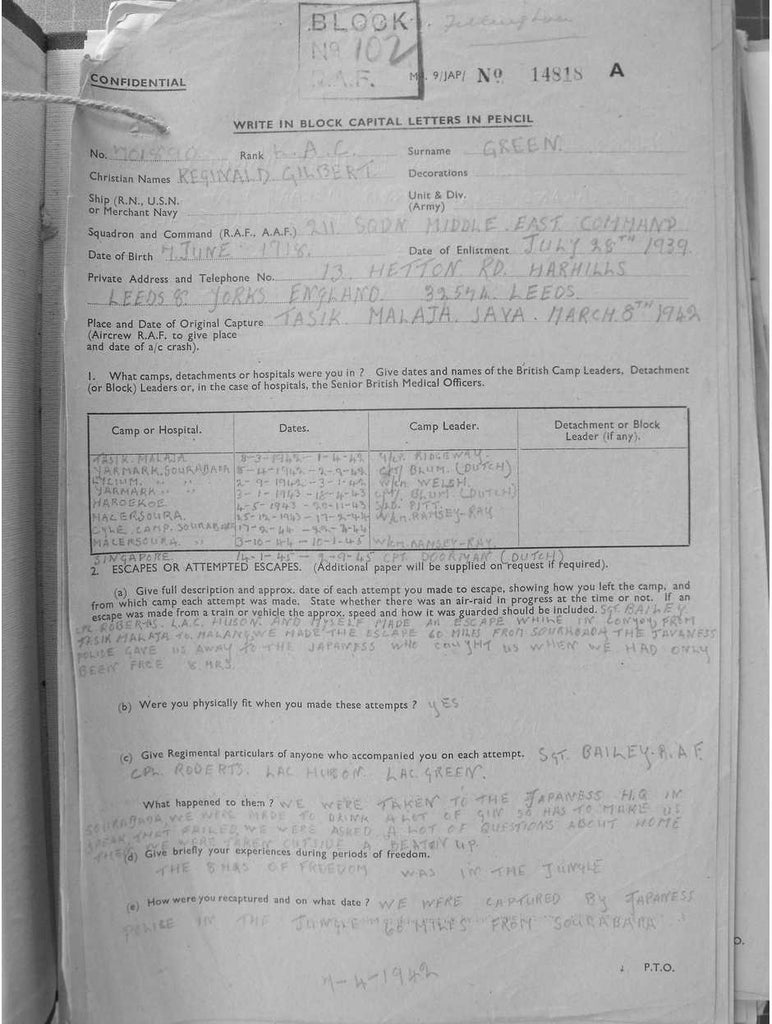 BLOCK
No 102
R.A.F.
CONFIDENTIAL
M. 9/JAP/ No 14818 A
WRITE IN BLOCK CAPITAL LETTERS IN PENCIL
No. Rank L.A.C. Surname GREEN.
Christian Names REGINALD GILBERT Decorations
Ship (R.N., U.S.N. Unit & Div.
or Merchant Navy (Army)
Squadron and Command (R.A.F., A.A.F.) 211 SQDN MIDDLE EAST COMMAND
Date of Birth 7 JUNE 1918. Date of Enlistment JULY 28TH 1939.
Private Address and Telephone No. 13 HETTON RD. HARHILLS
LEEDS 8. YORKS ENGLAND. 32574 LEEDS.
Place and Date of Original Capture TASIK MALAJA. JAVA. MARCH. 8TH 1942
(Aircrew R.A.F. to give place
and date of a/c crash).
1. What camps, detachments or hospitals were you in ? Give dates and names of the British Camp Leaders, Detachment
(or Block) Leaders or, in the case of hospitals, the Senior British Medical Officers.
Camp or Hospital. Dates. Camp Leader. Detachment or Block
Leader (if any).
TASIK. MALAJA 8-3-1942-1-4-42 RIDGEWAY.
YARMARK.SOURABADA 8-4-1942-2-9-42 CPT/ BLUM. (DUTCH)
LYCIUM. " " 2-9-1942-3-1-42 W/CM. WELSH.
YARMARK " " 3-1-1943 CPT/ BLUM (DUTCH)
HAROEKOE. 4-5-1943 -20-11-43 PITT.
MACERSOURA. 25-12-1943-17-2-44 W/CM. RAMSEY-RAY
CYCLE CAMP. SOURABADA 17-2-44
MACERSOURA. " 3-10-44-10-1-45 W/CM. RAMSEY-RAY.
SINGAPORE 14-1-45 - 2-9-45 CPT DOORMAN (DUTCH)
2. ESCAPES OR ATTEMPTED ESCAPES. (Additional paper will be supplied on request if required).
(a) Give full description and approx. date of each attempt you made to escape, showing how you left the camp, and
from which camp each attempt was made. State whether there was an air-raid in progress at the time or not. If an
escape was made from a train or vehicle the approx. speed and how it was guarded should be included. SGT BAILEY
CPL ROBERTS. L.A.C. HUSON. AND MYSELF MADE AN ESCAPE WHILE IN CONVOY, FROM
TASIK MALAJA TO MALANG, WE MADE THE ESCAPE 60 MILES FROM SOURABADA THE JAVANESS
POLICE GAVE US AWAY TO THE JAPANESS WHO CAUGHT US WHEN WE HAD ONLY
BEEN FREE 8 HRS.
(b) Were you physically fit when you made these attempts ? YES
(c) Give Regimental particulars of anyone who accompanied you on each attempt. SGT. BAILEY-R.A.F.
CPL. ROBERTS. LAC HUSON. LAC. GREEN.
What happened to them ? WE WERE TAKEN TO THE JAPANESS H.Q IN
SOURABADA, WE WERE MADE TO DRINK A LOT OF GIN SO HAS TO MAKE US
SPEAK THAT FAILED, WE WERE ASKED A LOT OF QUESTIONS ABOUT HOME
THEN WE WERE TAKEN OUTSIDE A BEATON UP.
(d) Give briefly your experiences during periods of freedom.
THE 8 HRS OF FREEDOM WAS IN THE JUNGLE
(e) How were you recaptured and on what date ? WE WERE CAPTURED BY JAPANESS
POLICE IN THE JUNGLE 60 MILES FROM SOURABADA
7-4-1942
P.T.O.